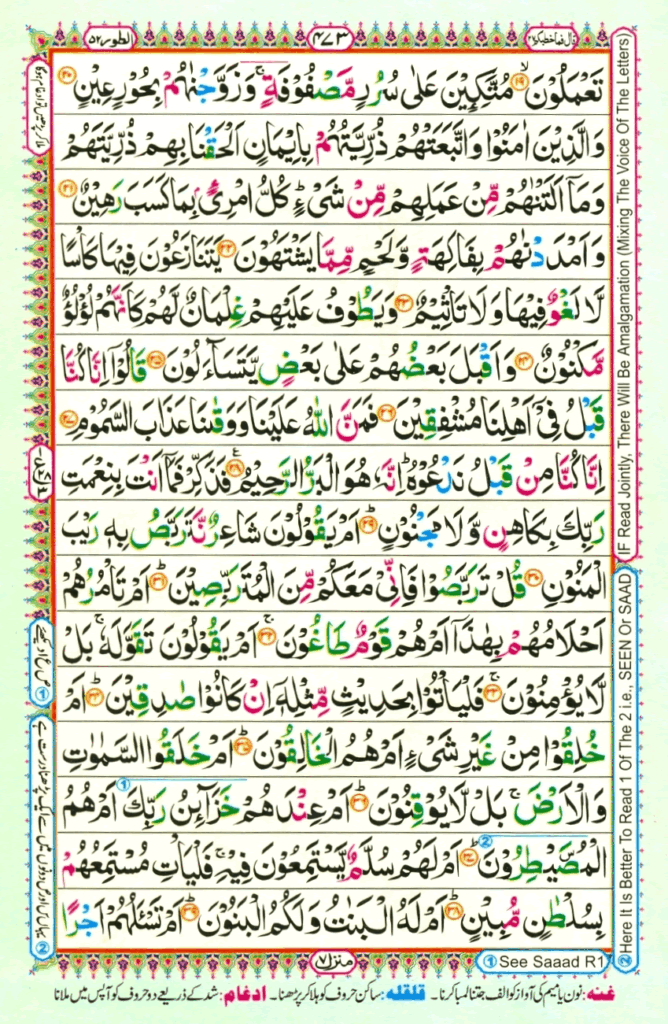 الطور ۵۲
۴۷۳
قال فما خطبكم ۲۷
تَعْمَلُوْنَ ۙ﴿۱۹﴾ مُتَّكِـِٕيْنَ عَلٰى سُرُرٍ مَّصْفُوْفَةٍ ۚ وَزَوَّجْنٰهُمْ بِحُوْرٍ عِيْنٍ ﴿۲۰﴾
وَالَّذِيْنَ اٰمَنُوْا وَاتَّبَعَتْهُمْ ذُرِّيَّتُهُمْ بِاِيْمَانٍ اَلْحَقْنَا بِهِمْ ذُرِّيَّتَهُمْ
وَمَاۤ اَلَتْنٰهُمْ مِّنْ عَمَلِهِمْ مِّنْ شَىْءٍ ؕ كُلُّ امْرِیٴٍۢ بِمَا كَسَبَ رَهِيْنٌ ﴿۲۱﴾
وَاَمْدَدْنٰهُمْ بِفَاكِهَةٍ وَّلَحْمٍ مِّمَّا يَشْتَهُوْنَ ﴿۲۲﴾ يَتَنَازَعُوْنَ فِيْهَا كَاْسًا
لَّا لَغْوٌ فِيْهَا وَلَا تَاْثِيْمٌ ﴿۲۳﴾ وَيَطُوْفُ عَلَيْهِمْ غِلْمَانٌ لَّهُمْ كَاَنَّهُمْ لُؤْلُؤٌ
مَّكْنُوْنٌ ﴿۲۴﴾ وَاَقْبَلَ بَعْضُهُمْ عَلٰى بَعْضٍ يَّتَسَآءَلُوْنَ ﴿۲۵﴾ قَالُوْۤا اِنَّا كُنَّا
قَبْلُ فِىْۤ اَهْلِنَا مُشْفِقِيْنَ ﴿۲۶﴾ فَمَنَّ اللّٰهُ عَلَيْنَا وَوَقٰىنَا عَذَابَ السَّمُوْمِ ﴿۲۷﴾
اِنَّا كُنَّا مِنْ قَبْلُ نَدْعُوْهُ ؕ اِنَّهٗ هُوَ الْبَرُّ الرَّحِيْمُ ﴿۲۸﴾ فَذَكِّرْ فَمَاۤ اَنْتَ بِنِعْمَتِ
رَبِّكَ بِكَاهِنٍ وَّلَا مَجْنُوْنٍ ؕ﴿۲۹﴾ اَمْ يَقُوْلُوْنَ شَاعِرٌ نَّتَرَبَّصُ بِهٖ رَيْبَ
الْمَنُوْنِ ﴿۳۰﴾ قُلْ تَرَبَّصُوْا فَاِنِّىْ مَعَكُمْ مِّنَ الْمُتَرَبِّصِيْنَ ؕ﴿۳۱﴾ اَمْ تَاْمُرُهُمْ
اَحْلَامُهُمْ بِهٰذَاۤ اَمْ هُمْ قَوْمٌ طَاغُوْنَ ۚ﴿۳۲﴾ اَمْ يَقُوْلُوْنَ تَقَوَّلَهٗ ۚ بَلْ
لَّا يُؤْمِنُوْنَ ۚ﴿۳۳﴾ فَلْيَاْتُوْا بِحَدِيْثٍ مِّثْلِهٖۤ اِنْ كَانُوْا صٰدِقِيْنَ ؕ﴿۳۴﴾ اَمْ
خُلِقُوْا مِنْ غَيْرِ شَىْءٍ اَمْ هُمُ الْخَالِقُوْنَ ؕ﴿۳۵﴾ اَمْ خَلَقُوا السَّمٰوٰتِ
وَالْاَرْضَ ۚ بَلْ لَّا يُوْقِنُوْنَ ؕ﴿۳۶﴾ اَمْ عِنْدَهُمْ خَزَآئِنُ رَبِّكَ اَمْ هُمُ
الْمُصَۜيْطِرُوْنَ ؕ﴿۳۷﴾ اَمْ لَهُمْ سُلَّمٌ يَّسْتَمِعُوْنَ فِيْهِ ۚ فَلْيَاْتِ مُسْتَمِعُهُمْ
بِسُلْطٰنٍ مُّبِيْنٍ ؕ﴿۳۸﴾ اَمْ لَهُ الْبَنٰتُ وَلَكُمُ الْبَنُوْنَ ؕ﴿۳۹﴾ اَمْ تَسْـَٔلُهُمْ اَجْرًا
منزل ۷
① See Saaad R1
IF Read Jointly, There Will Be Amalgamation (Mixing The Voice Of The Letters)
② Here It Is Better To Read 1 Of The 2 i.e., SEEN Or SAAD
غنه: نون یا میم کی آواز کو الف جتنا لمبا کرنا۔ قلقله: ساکن حروف کو ہلا کر پڑھنا۔ ادغام: شد کے ذریعے دو حروف کو آپس میں ملانا